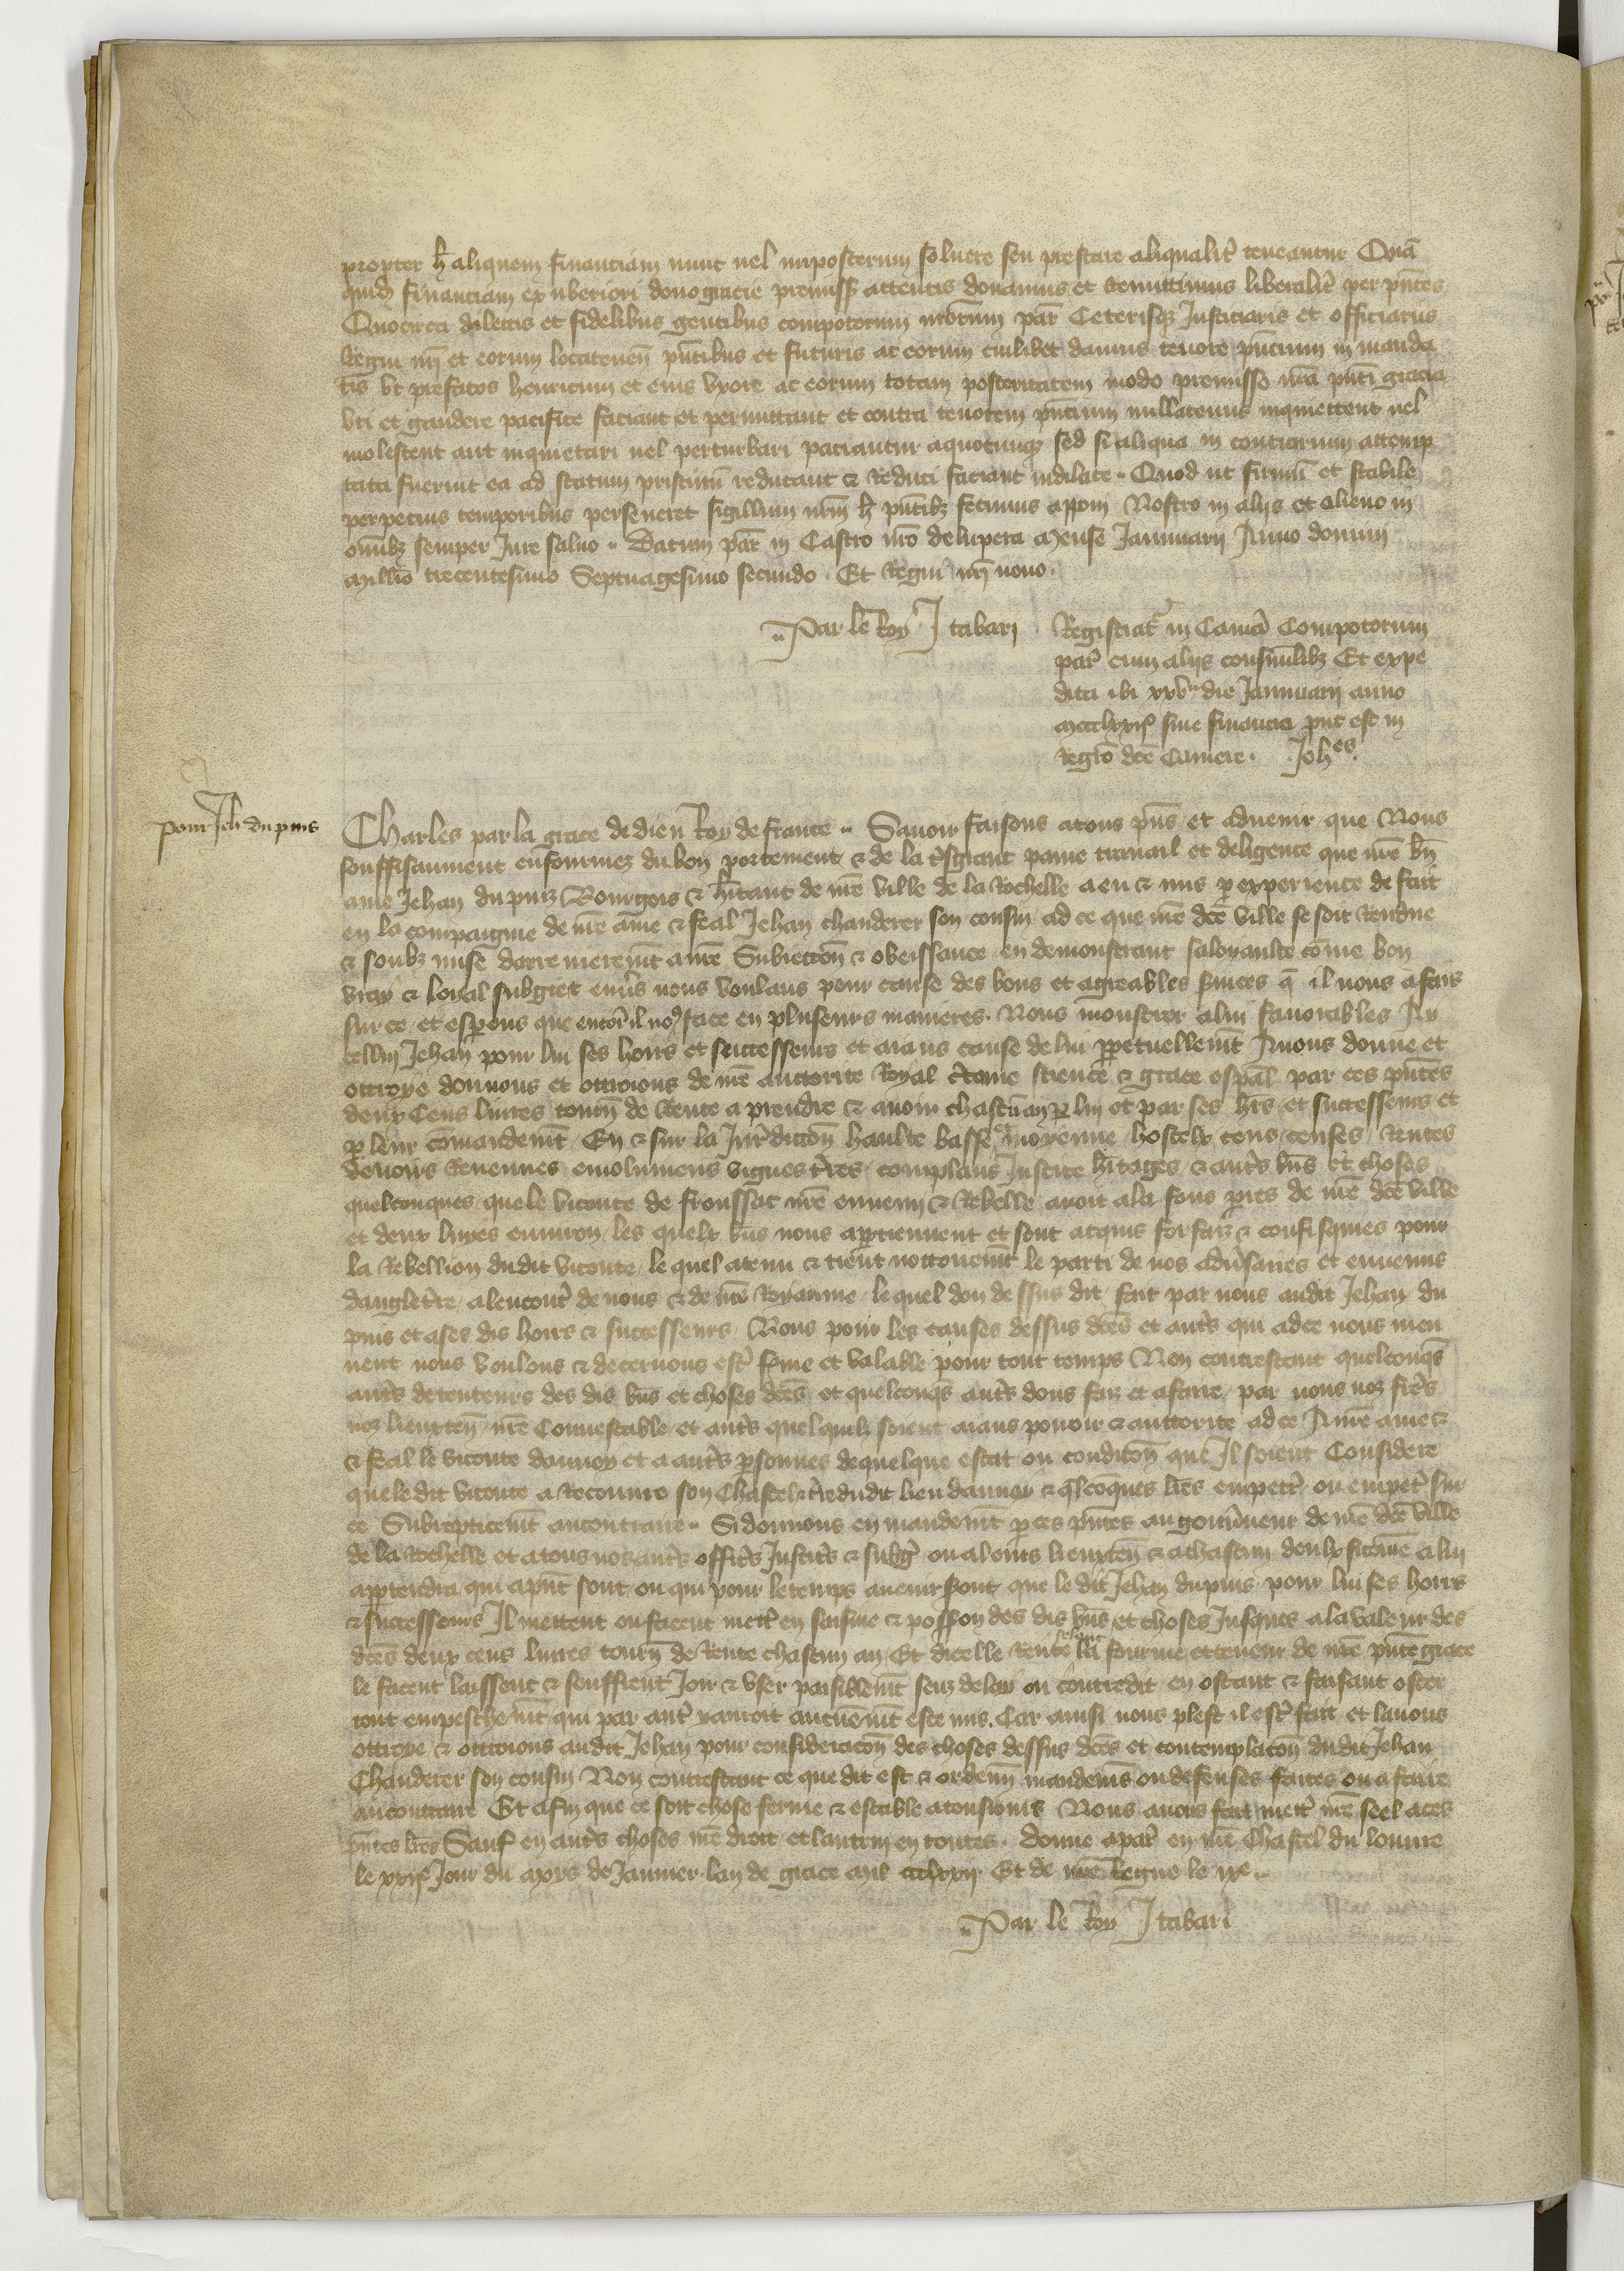 propter h̄ aliquem financiam nunc uel imposterum soluere seu prestare aliqualit̉ teneantur Quā
quid̄ financiam ex uberiori dono gracie premiss̄ attentis donamus et remittimus liberalit̉ per pn̄tes
Quocirca dilectis et fidelibus gentibus compotorum nr̄orum par̄ Ceterisqȝ Justiciariis et officiariis
Regni nr̄i et eorum locatenen̄ pn̄tibus et futuris ac eorum cuilibet damus tenore pn̄cium in manda
tis ut prefatos henricum et eius uxore ac eorum totam posteritatem modo premisso nr̄a pn̄ti gracia
uti et gaudere pacifice faciant et permittant et contra tenorem pn̄cium nullatenus inquietent uel
molestent aut inquietari uel perturbari paciantur a quocunqȝ sed si aliqua in contrarium attemp
tata fuerint ea ad statum pristinū reducant & reduci faciant indilate Quod ut firmū et stabile
perpetuis temporibus perseueret sigillum nr̄m h̄ pn̄tibȝ fecimus apponi Nostro in aliis et alieno in
omībȝ semper Jure saluo Datum par̄ in Castro nr̄o de lupera Mense Januarii Anno domini
Millīo trecentesimo Septuagesimo secundo. Et Regni nr̄i nono.
Par le Roy J tabari
Registrat̉ in Camā Compotorum
par̄ cum aliis consimilibȝ Et expe
dita ibi xxv die Januarii anno
Mccclxxij sine financia put̄ est in
Regr̄o dc̄e Camere. Joh̄es.
pour Jeh̄ du puis
Charles par la grace de dieu Roy de france Sauoir faisons a tous pn̄s et aduenir que Nous
souffisaument enfourmez du bon portement & de la tr̄sgrant paine trauail et deligence que nr̄e bn̄
ame Jehan du puiz Bourgois & h̄itant de nr̄e ville de la Rochelle a eu & mis p experience de fait
en la compaignie de nr̄e ame & feal Jehan chanderer son cousin ad ce que nr̄e dc̄e ville se soit Rendue
& soubz mise darrenierem̄t a nr̄e Subiection̄ & obeissance en demonstrant sa loyaulte com̄e bon
vray & loyal subgiet enủs nous voulans pour cause des bons et agreables sủices q̄ il nous a fais
sur ce et esperons que encor̄ il no9 face en pluseurs manieres. Nous monstrer a lui fauorables A y
cellui Jehan pour lui ses hoirs et successeurs et aians cause de lui p̱petuellem̄t Auons donne et
ottroye donnons et ottroions de nr̄e auctorite Royal c̉taine science & grace esp̄al par ces pn̄tes
deux Cens liures tourn̄ de Rente a prendre & auoir chascū an p̱ lui et par ses hr̄s et successeurs et
p̱ leur com̄andem̄t En & sur la Jurīdiction̄ haulte basse et moyenne hostelx cens censes Rentes
deuoirs Reuenues emolumens vignes t̉res complans Justice h̄itages & aut̉s bn̄s et choses
quelconques que le viconte de fronssac nr̄e ennemi & Rebelle auoit a la fons pres de nr̄e dc̄e ville
et deux liues enuiron les quelx bn̄s nous appartiennent et sont acquis forfaiz & confisquies pour
la Rebellion dudit viconte le quel a tenu & tient nottoirem̄t le parti de nos adủsaires et ennemis
dangleterre a lencont̉ de nous & de nr̄e Royaume le quel don dessus dit fait par nous audit Jehan du
puis et a ses dis hoirs & successeurs Nous pour les causes dessus dc̄es et aut̉s qui ad ce nous meu
uent nous voulons & decernons est̉ ferme et valable pour tout temps Non contrestant quelconqs̄
aut̉s detenteurs des dis bn̄s et choses dc̄es et quelconqs̄ aut̉s dons faiz et a faire par nous noz fr̉es
noz lieuxten̄ nr̄e Connestable et aut̉s quelquilz soient aians pouoir & auctorite ad ce A nr̄e ame
& feal le viconte daunoy et a aut̉s personnes de quelque estat ou condicion̄ que Il soient Considere
que le dit viconte a Recouure son Chastel & t̉re du dit lieu daunay & q̄lcōques lr̄es empetr̉ ou empet̉ sur
ce Subrepticem̄t au contraire Si donnons en mandem̄t p̱ ces pn̄tes au gouủneur de nr̄e dc̄e ville
de la Rochelle et a tous noz aut̉s officr̉s Justicr̉s & subg̉ ou a leurs lieuxten̄ & a chascun deulx si com̄e a lui
appartendra qui a pn̄t sont ou qui pour le temps auenir seront que le dit Jehan du puis pour lui ses hoirs
& successeurs Il mettent ou facent mett̉ en saisine & poss̄on des dis bn̄s et choses Jusques a la valeur des
dc̄es deux cens liures tourn̄ de Rente chascun an Et dicelle Rente selonc la fourme et teneur de nr̄e pn̄te grace
le facent laissent & seuffrent Joir & vser paisiblem̄t senz delay ou contredit en ostant & faisant oster
tout empeschem̄t qui par aut̉ y auroit aucunem̄t este mis. Car ainsi nous plest il est̉ fait et lauons
ottroye & ottroions audit Jehan pour consideracion̄ des choses dessus dc̄es et contemplacion̄ dudit Jehan
Chanderer son cousin Non contrestant ce que dit est & ordenn̄ mandemēs ou defenses faites ou a faire
au contraire Et afin que ce soit chose ferme & estable a tousiours Nous auons fait mett̉ nr̄e seel a ces
pn̄tes lr̄es Sauf en aut̉s choses nr̄e droit et lautrui en toutes. Donne a par̄ en nr̄e Chastel du louure
le xxije Jour du moys de Januier lan de grace mil ccclxxij Et de nr̄e Regne le ixe
Par le Roy J tabari